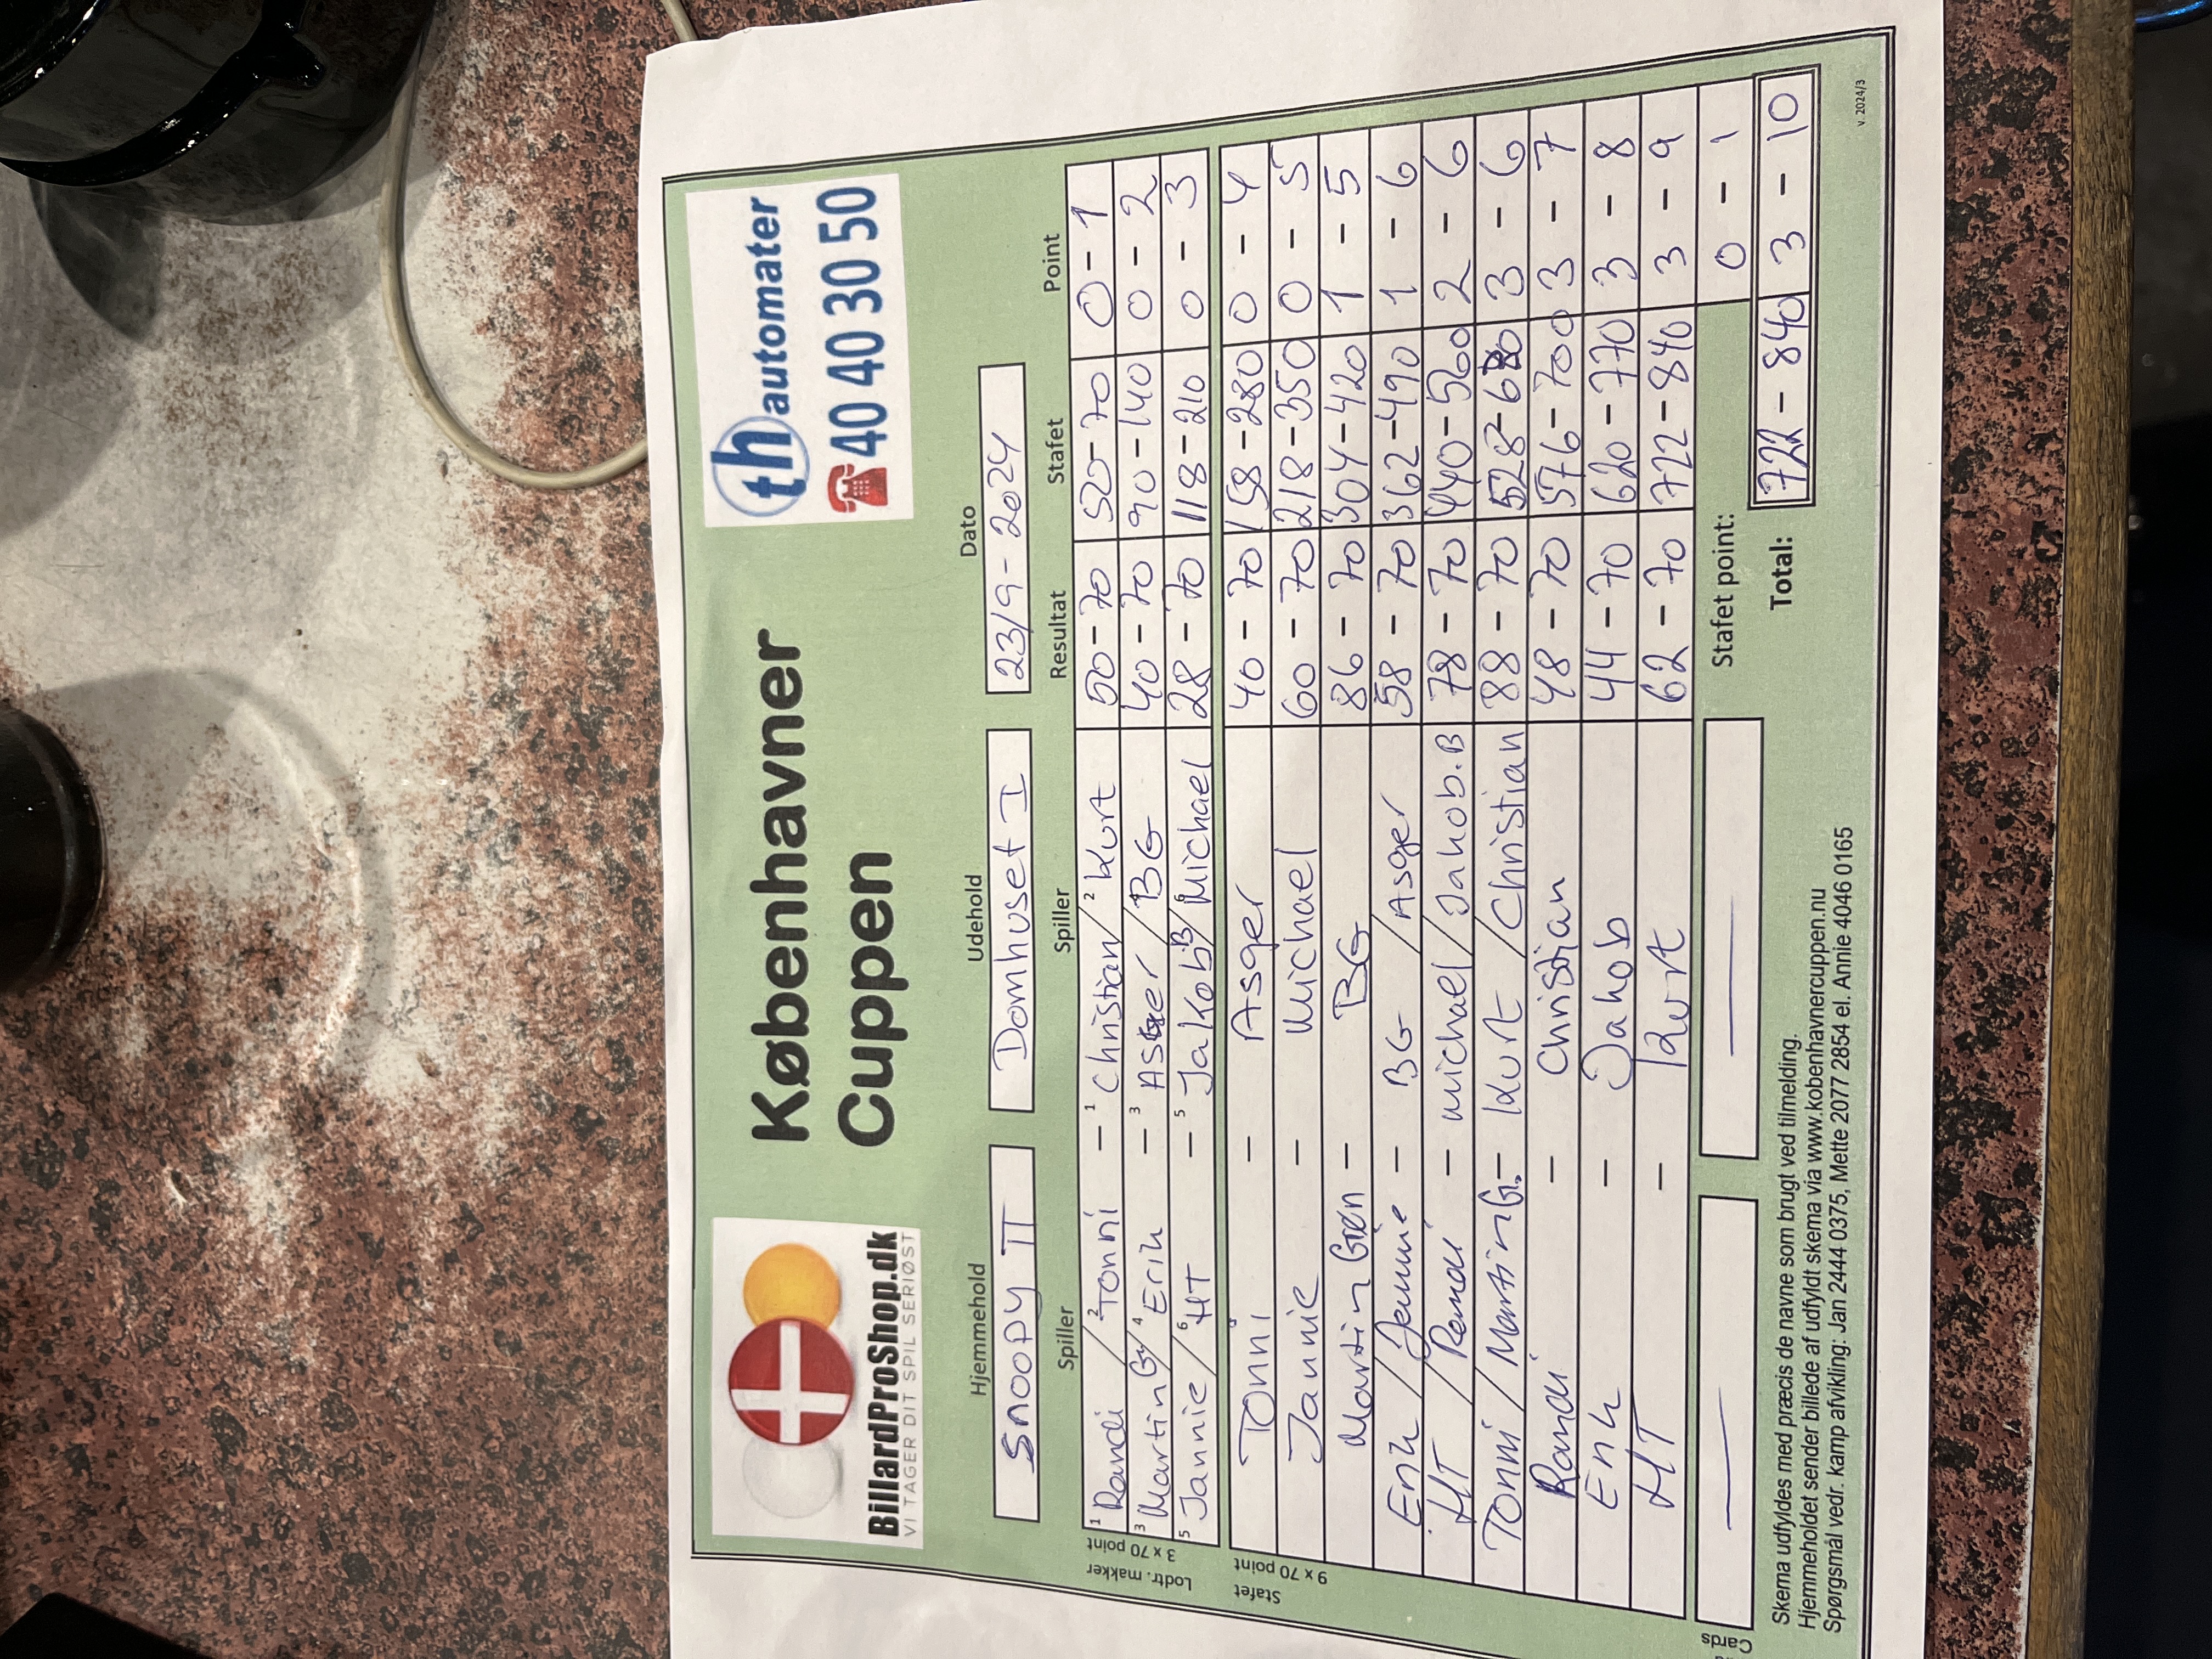 BillardProShop.dk
VI TAGER DIT SPIL SERIØST
Københavner
Cuppen
th automater
40 40 30 50
Hjemmehold Udehold Dato
Snoopy II Domhuset I 23/9-2024
Spiller Spiller Resultat Stafet Point
Lodtr. makker
3 x 70 point
1 Randi / 2 Tonni - 1 Christian / 2 Kurt 50-70 50-70 0-1
3 Martin G / 4 Erik - 3 Asger / BG 40-70 90-140 0-2
5 Jannie / 6 HT - 5 Jakob B / 6 Michael 28-70 118-210 0-3
Stafet
9 x 70 point
Tonni - Asger 40-70 158-280 0-4
Jannie - Michael 60-70 218-350 0-5
Martin Grøn - BG 86-70 304-420 1-5
Erik / Jannie - BG / Asger 58-70 362-490 1-6
HT / Randi - Michael / Jakob.B 78-70 440-560 2-6
Tonni / Martin G. - Kurt / Christian 88-70 528-630 3-6
Randi - Christian 48-70 576-700 3-7
Erik - Jakob 44-70 620-770 3-8
HT - Kurt 62-70 722-840 3-9
Cards
Stafet point: 0-1
Total: 722-840 3-10
Skema udfyldes med præcis de navne som brugt ved tilmelding.
Hjemmeholdet sender billede af udfyldt skema via www.københavnercuppen.nu
Spørgsmål vedr. kamp afvikling: Jan 2444 0375, Mette 2077 2854 el. Annie 4046 0165
v. 2024/3